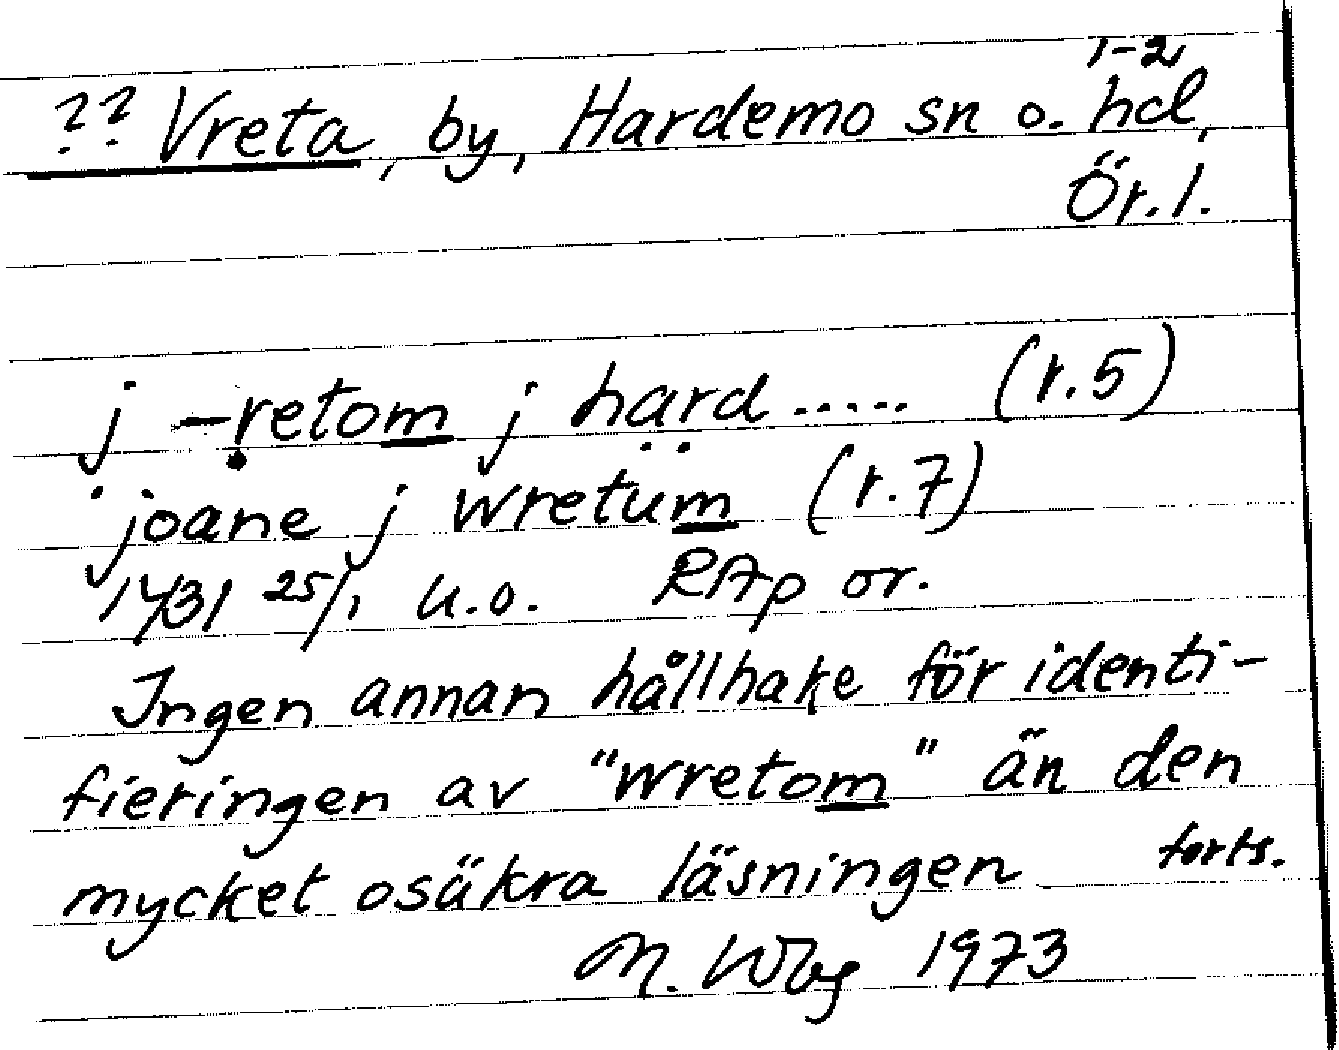 1-2
?? Vreta, by, Hardemo sn o. hd,
Ör. l.
j -ṛetom j hạṛd ..... (r.5)
joane j wretum (r.7)
1431 25/1 u.o. RAp or.
Ingen annan hållhake för identi-
fieringen av "wretom" än den
mycket osäkra läsningen forts.
M. Wbg 1973